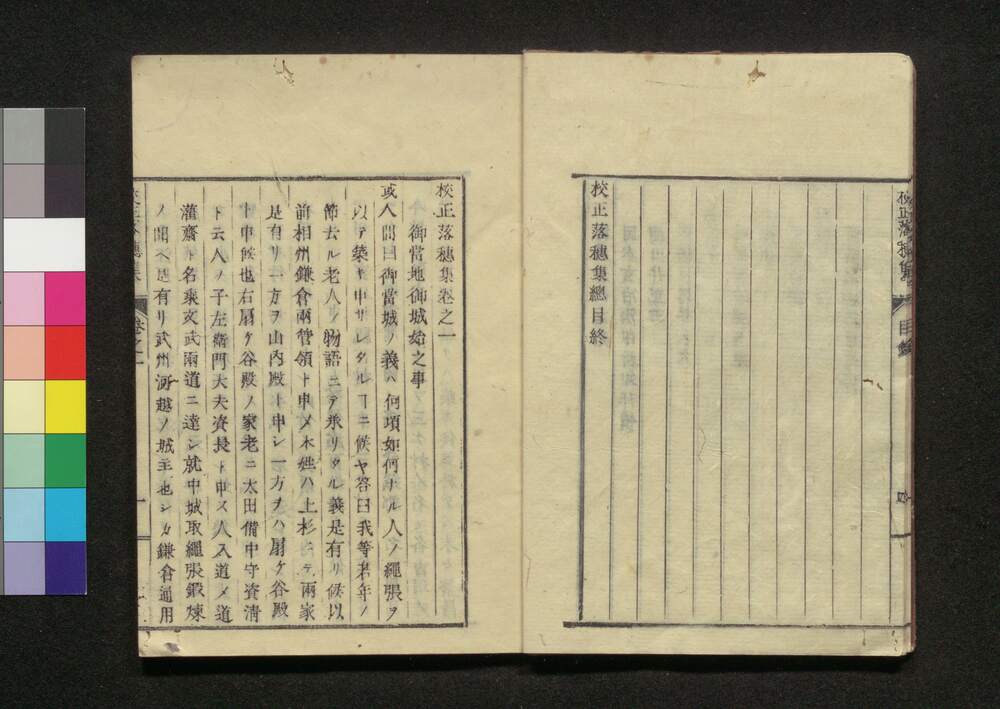 校正落穗集
目錄
四
校正落穗集總目終
校正落穗集卷之一
御當地御城始之事
或人問曰御當城ノ義ハ何頃如何ナル人ノ繩張ヲ
以テ築キ申サレタルヿニ候ヤ答曰我等若年ノ
節去ル老人ノ物語ニテ承リタル義是有リ候以
前相州鎌倉兩管領ト申メ本姓ハ上杉ニテ兩家
是有リ一方ヲ山内殿ト申シ一方ヲハ扇ケ谷殿
ト申候也右扇ケ谷殿ノ家老ニ太田備中守資淸
ト云人ノ子左衞門大夫資長ト申ス人入道メ道
灌齋ト名乘文武兩道ニ達シ就中城取繩張鍛煉
ノ聞ヘ是有リ武州河越ノ城主也シカ鎌倉通用
卷之一
一